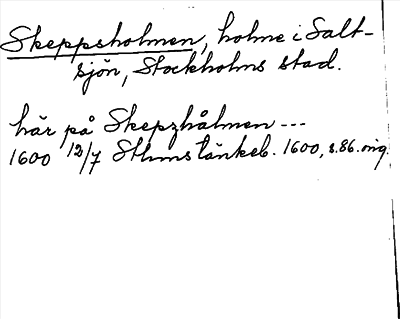 Skeppsholmen, holme i Salt-
sjön, Stockholms stad.
här på Skepzhålmen ---
1600 12/7 Sthms tänkeb. 1600, s.86. orig.